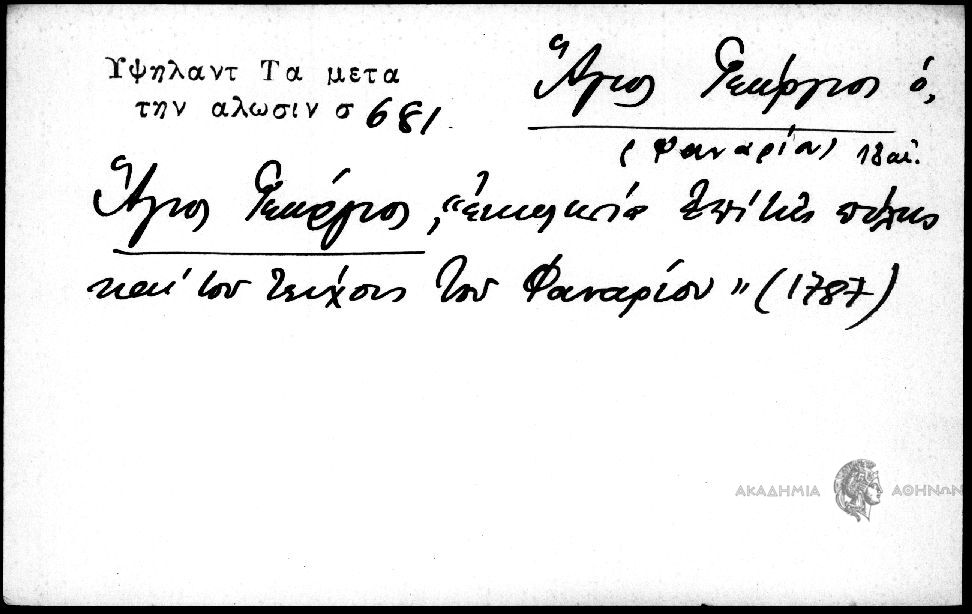 Υψηλαντ Τα μετα
την αλωσιν σ 681.
Ἅγιος Γεώργιος ὁ,
(Φανάριον) 18 αἰ.
Ἅγιος Γεώργιος, "ἐκκλησία ἐπί τῆς πύλης
καί του τείχους του Φαναρίου" (1787)
ΑΚΑΔΗΜΙΑ ΑΘΗΝΩΝ